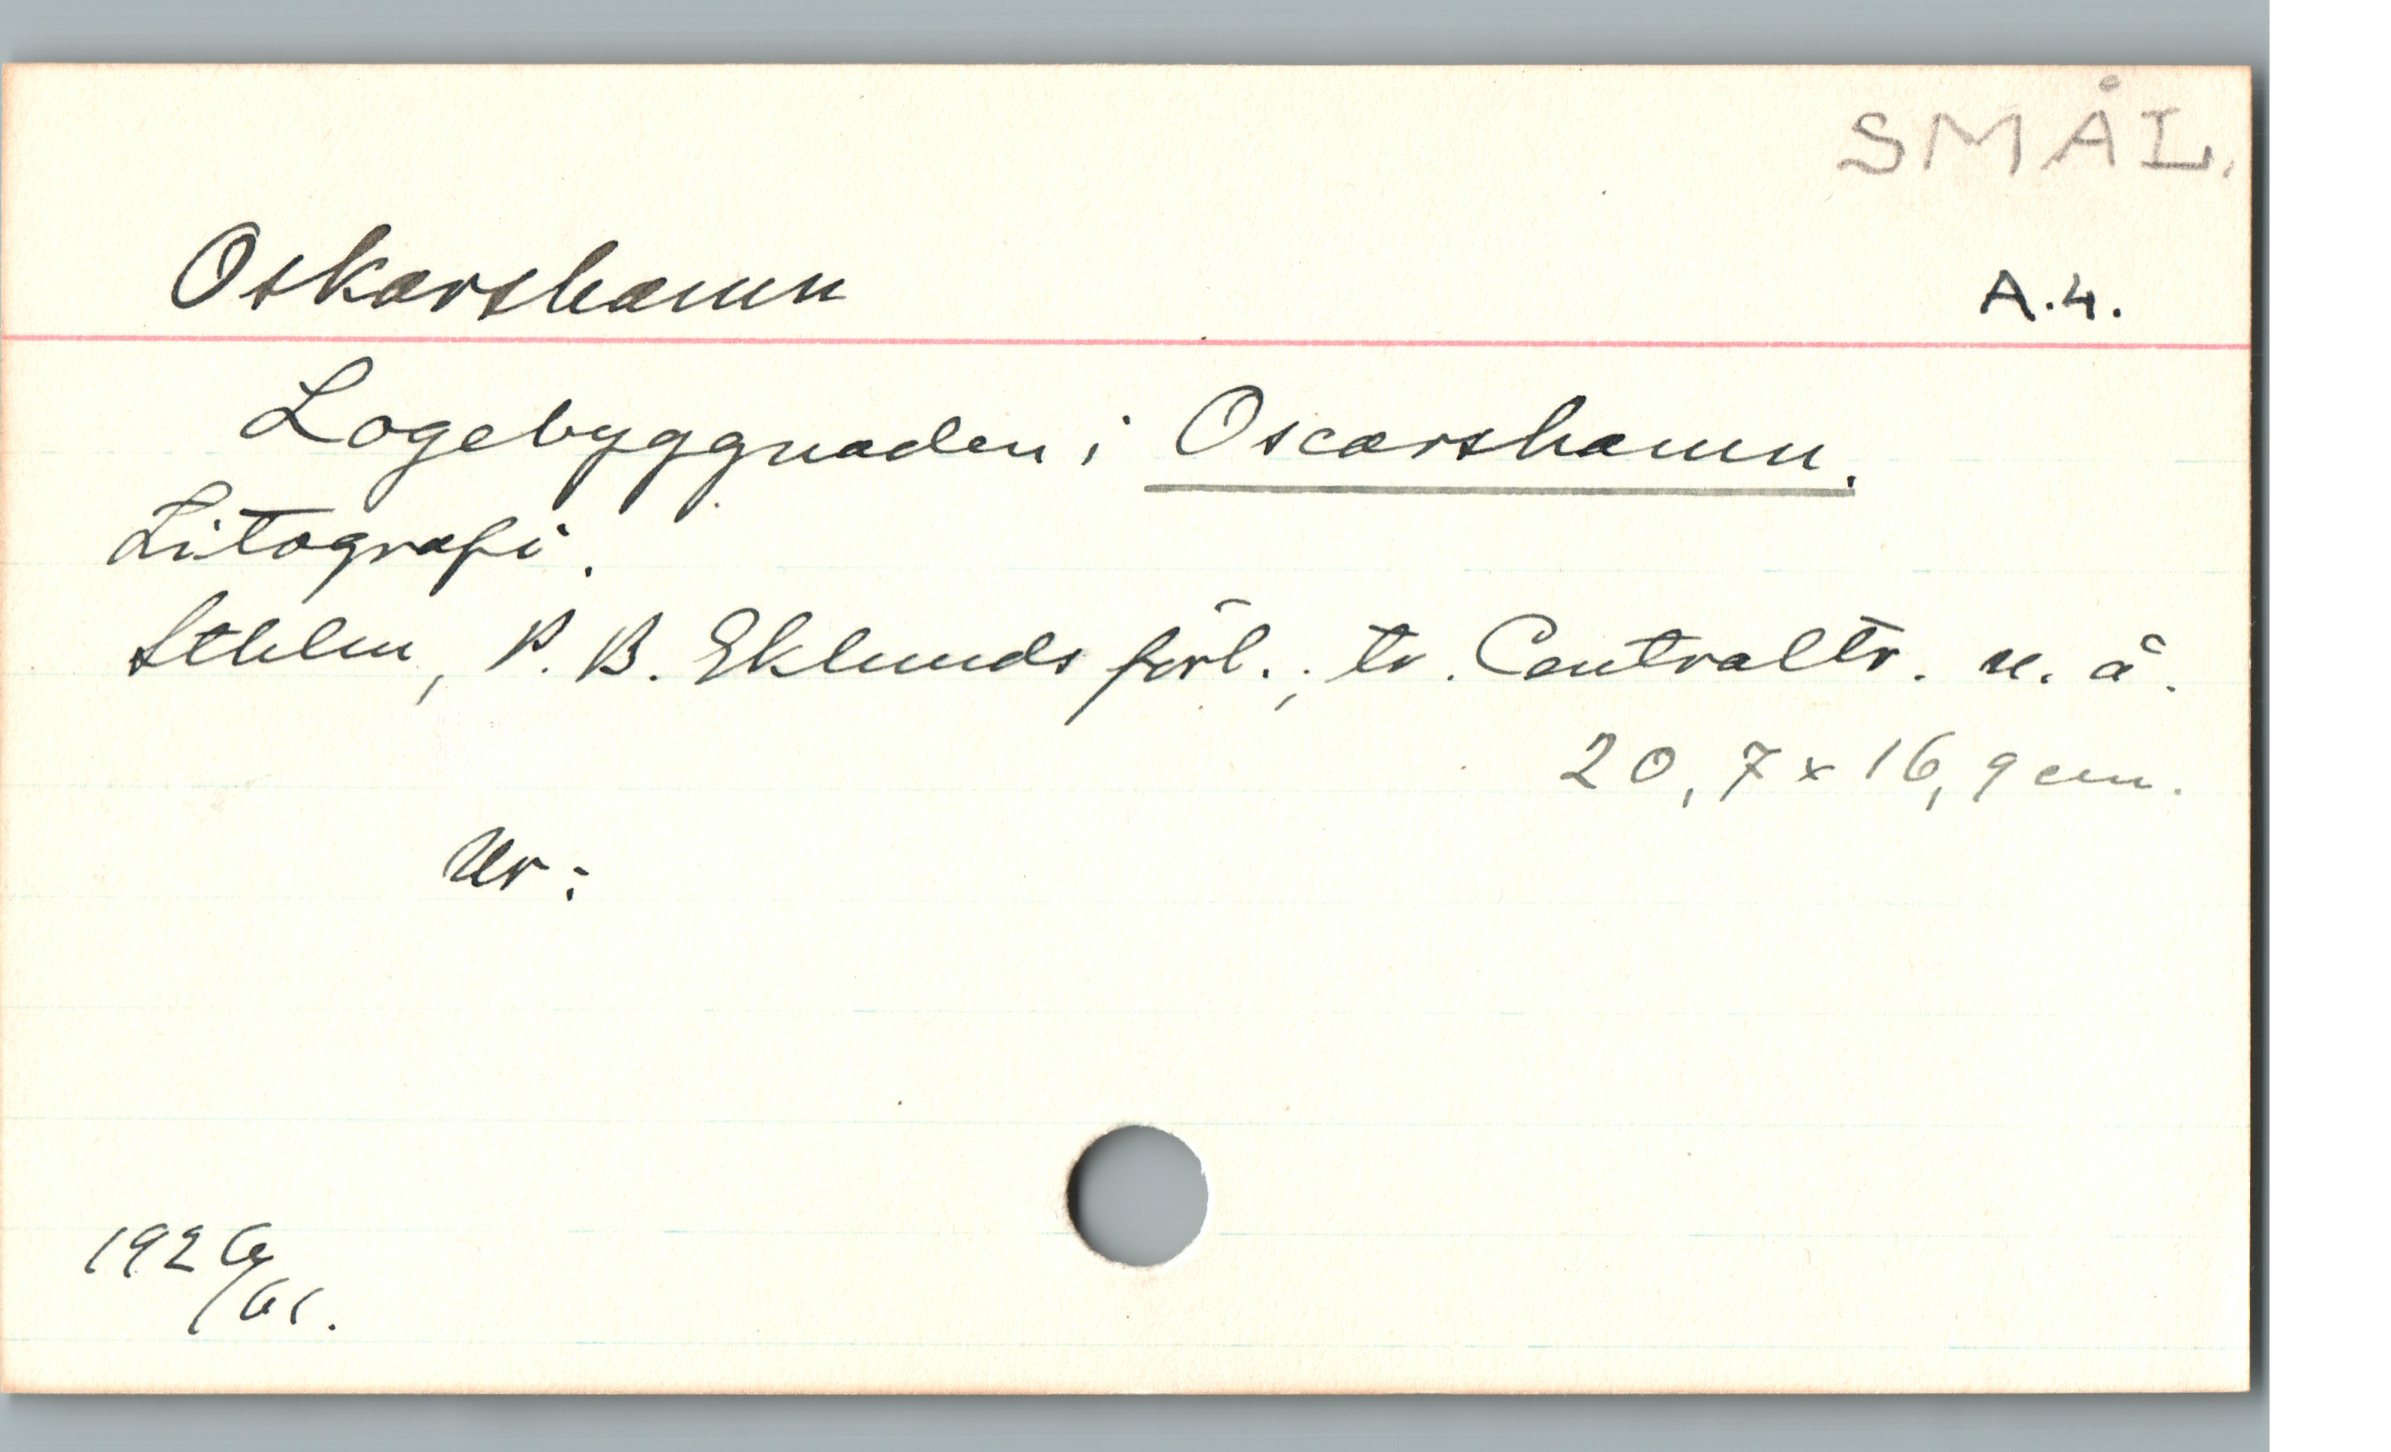 SMÅL.
Oskarshamn A.4.
Logebyggnaden i Oscarshamn.
Litografi.
Sthlm, P. B. Eklunds förl.; tr. Centraltr. u. å.
20,7 x 16,9 cm.
Ur:
1926
/61.